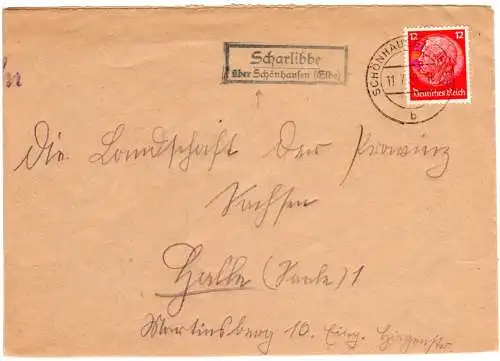 Scharlibbe
über Schönhausen (Elbe)
SCHÖNHAUS
11.
b
12 12
Deutsches Reich
Die Landschaft der Provinz
Sachsen
Halle (Saale) 1
Martinsberg 10. Eing.